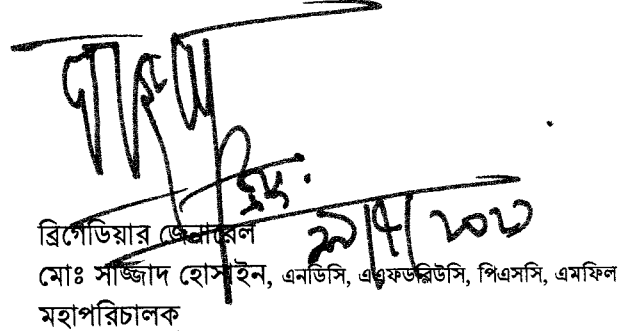 ব্রিগেডিয়ার জেনারেল
মোঃ সাজ্জাদ হোসাইন, এনডিসি, এএফডব্লিউসি, পিএসসি, এমফিল
মহাপরিচালক